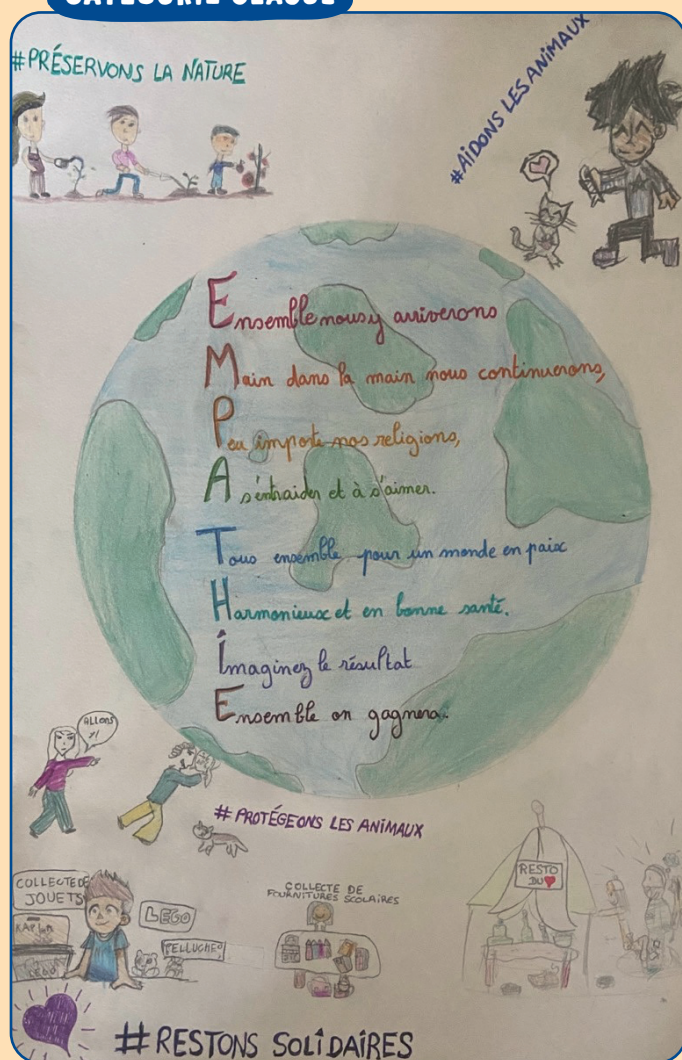 CATÉGORIE CLASSE
#PRÉSERVONS LA NATURE
#AIDONS LES ANIMAUX
Ensemble nous y arriverons
Main dans la main nous continuerons,
Peu importe nos religions,
A s'entraider et à s'aimer.
Tous ensemble pour un monde en paix
Harmonieux et en bonne santé.
Imaginez le résultat
Ensemble on gagnera.
ALLONS Y!
# PROTÉGEONS LES ANIMAUX
COLLECTE DE JOUETS
KAPLA
LEGO
LEGO
PELLUCHES
COLLECTE DE
FOURNITURES SCOLAIRES
RESTO
DU ❤
#RESTONS SOLIDAIRES